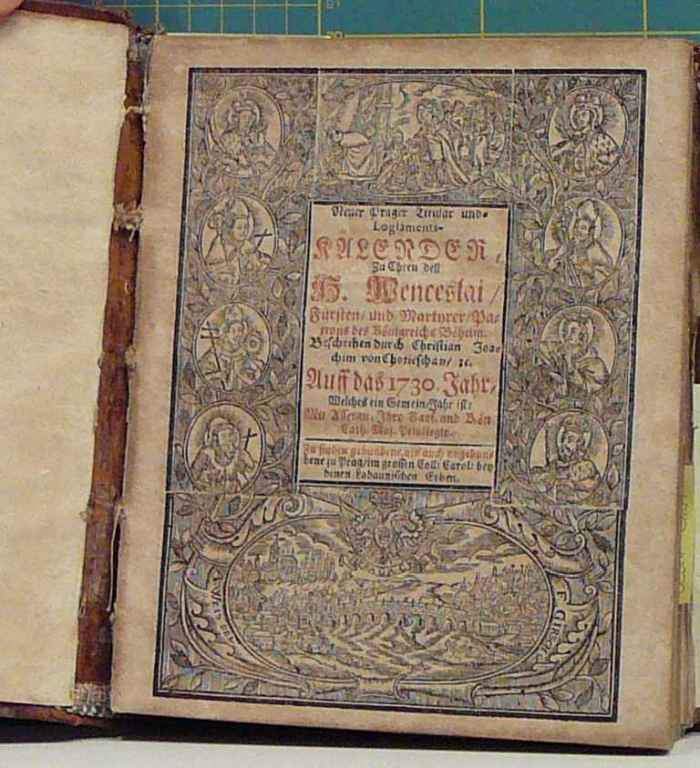 Neuer Prager Titular und-
Logiaments-
KALENDER,
Zu Ehren deß
H. Wenceslai /
Fürsten / und Martyrer / Pa-
trons des Königreichs Böheim.
Beschrieben durch Christian Joa-
chim von Chotieschau / ꝛc.
Auff das 1730. Jahr,
Welches ein Gemein-Jahr ist.
Mit Allergn. Ihro Kays. und Kön.
Cath. Maj. Privilegio.
Zu finden gebundene, als auch ungebun-
dene zu Prag / im grossen Coll: Carol: bey
denen Labaunischen Erben.